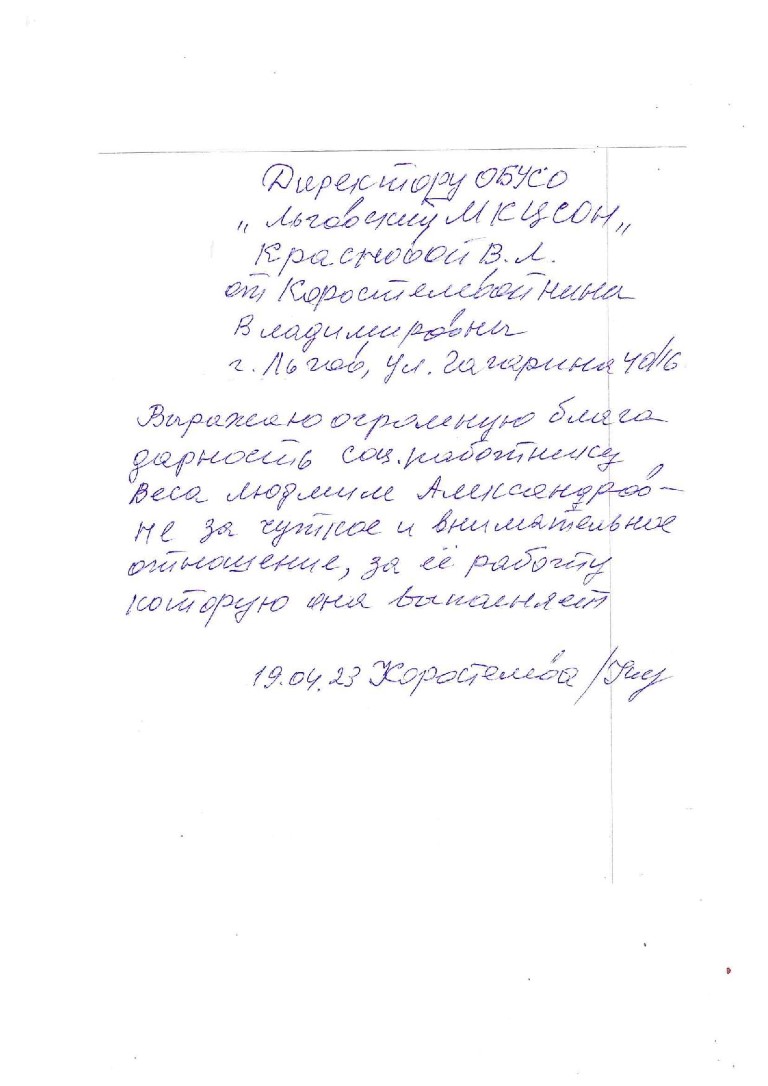 Директору ОБУСО
„Льговский МКЦСОН„
Красновой В.Л.
от Коростелевой Нина
Владимировны
г. Льгов, ул. Гагарина
Выражаю огромную блага
дарность соц.работнику
Веса Людмиле Александров-
не за чуткое и внимательное
отношение, за её работу
которую она выполняет
19.04.23 Коростелёва /